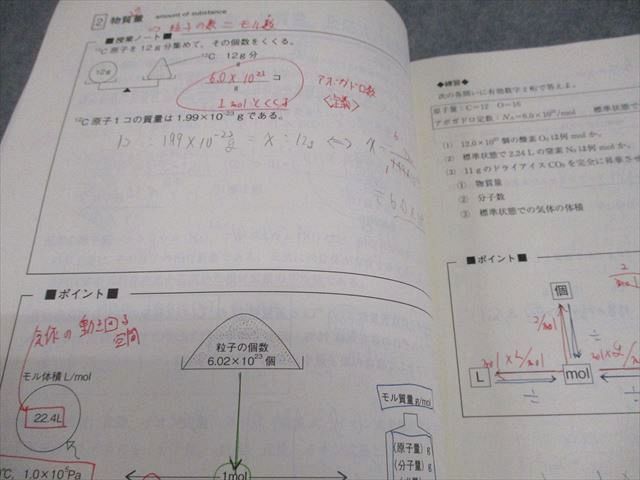 2 物質量 amount of substance
⇒ 粒子の数 = モル数
■授業ノート■
¹²C原子を12g分集めて、その個数をくくる。
12g
¹²C 12g分
6.0×10²³ コ
1molとくくる
アボガドロ数
<定義>
¹²C原子1コの質量は1.99×10⁻²³gである。
1コ : 1.99×10⁻²³g = x : 12g ⇔ x =
≒ 6.0×
■ポイント■
気体の動き回る空間
モル体積 L/mol
22.4L
℃, 1.0×10⁵Pa
粒子の個数
6.02×10²³個
1mol
モル質量 g/mol
(原子量) g
(分子量) g
◆練習◆
次の各問いに有効数字2桁で答えよ。
原子量:C=12 O=16
アボガドロ定数:Nₐ=6.0×10²³/mol 標準状態で
(1) 12.0×10²³個の酸素O₂は何molか。
(2) 標準状態で2.24Lの窒素N₂は何molか。
(3) 11gのドライアイスCO₂を完全に昇華させ
① 物質量
② 分子数
③ 標準状態での気体の体積
■ポイント■
個
コ/mol
÷
L
mol
÷
÷